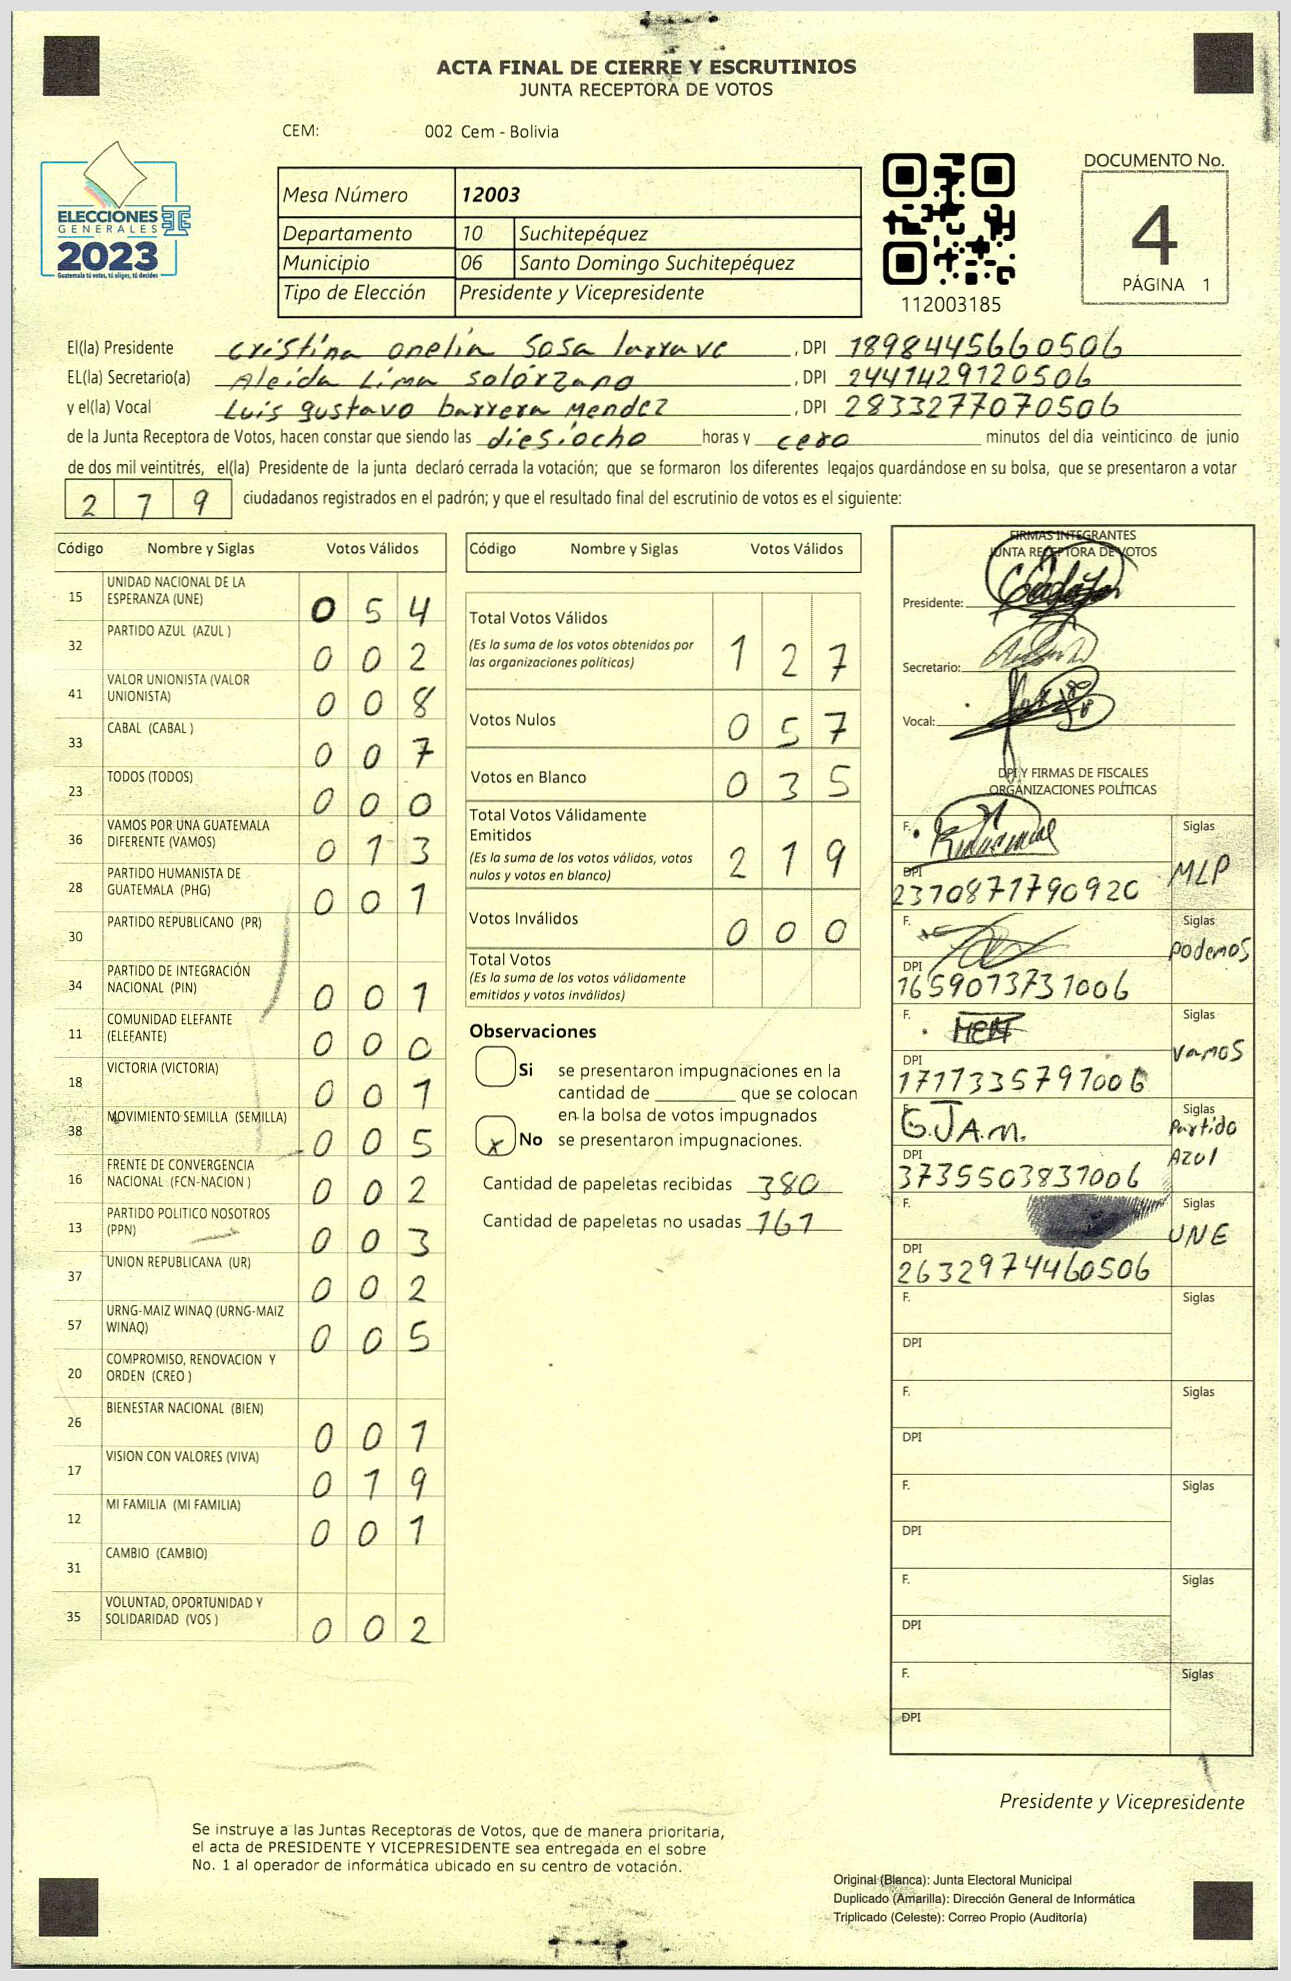 ACTA FINAL DE CIERRE Y ESCRUTINIOS
JUNTA RECEPTORA DE VOTOS
CEM: 002 Cem - Bolivia
ELECCIONES
GENERALES
2023
Guatemala tú votas, tú eliges, tú decides
Mesa Número 12003
Departamento 10 Suchitepéquez
Municipio 06 Santo Domingo Suchitepéquez
Tipo de Elección Presidente y Vicepresidente
112003185
DOCUMENTO No.
4
PÁGINA 1
El(la) Presidente Cristina onelia Sosa larrave , DPI 1898445660506
EL(la) Secretario(a) Aleida Lima Solórzano , DPI 2441429120506
y el(la) Vocal Luis gustavo barrera Mendez , DPI 2833277070506
de la Junta Receptora de Votos, hacen constar que siendo las diesiocho horas y cero minutos del día veinticinco de junio
de dos mil veintitrés, el(la) Presidente de la junta declaró cerrada la votación; que se formaron los diferentes legajos quardándose en su bolsa, que se presentaron a votar
2 7 9 ciudadanos registrados en el padrón; y que el resultado final del escrutinio de votos es el siguiente:
Código Nombre y Siglas Votos Válidos
15 UNIDAD NACIONAL DE LA
ESPERANZA (UNE) 0 5 4
32 PARTIDO AZUL (AZUL ) 0 0 2
41 VALOR UNIONISTA (VALOR
UNIONISTA) 0 0 8
33 CABAL (CABAL ) 0 0 7
23 TODOS (TODOS) 0 0 0
36 VAMOS POR UNA GUATEMALA
DIFERENTE (VAMOS) 0 1 3
28 PARTIDO HUMANISTA DE
GUATEMALA (PHG) 0 0 1
30 PARTIDO REPUBLICANO (PR)
34 PARTIDO DE INTEGRACIÓN
NACIONAL (PIN) 0 0 1
11 COMUNIDAD ELEFANTE
(ELEFANTE) 0 0 0
18 VICTORIA (VICTORIA) 0 0 1
38 MOVIMIENTO SEMILLA (SEMILLA) 0 0 5
16 FRENTE DE CONVERGENCIA
NACIONAL (FCN-NACION ) 0 0 2
13 PARTIDO POLITICO NOSOTROS
(PPN) 0 0 3
37 UNION REPUBLICANA (UR) 0 0 2
57 URNG-MAIZ WINAQ (URNG-MAIZ
WINAQ) 0 0 5
20 COMPROMISO, RENOVACION Y
ORDEN (CREO )
26 BIENESTAR NACIONAL (BIEN) 0 0 1
17 VISION CON VALORES (VIVA) 0 1 9
12 MI FAMILIA (MI FAMILIA) 0 0 1
31 CAMBIO (CAMBIO)
35 VOLUNTAD, OPORTUNIDAD Y
SOLIDARIDAD (VOS ) 0 0 2
Código Nombre y Siglas Votos Válidos
Total Votos Válidos
(Es la suma de los votos obtenidos por
las organizaciones políticas) 1 2 7
Votos Nulos 0 5 7
Votos en Blanco 0 3 5
Total Votos Válidamente
Emitidos
(Es la suma de los votos válidos, votos
nulos y votos en blanco) 2 1 9
Votos Inválidos 0 0 0
Total Votos
(Es la suma de los votos válidamente
emitidos y votos inválidos)
Observaciones
Si se presentaron impugnaciones en la
cantidad de ________ que se colocan
en la bolsa de votos impugnados
x No se presentaron impugnaciones.
Cantidad de papeletas recibidas 380
Cantidad de papeletas no usadas 161
FIRMAS INTEGRANTES
JUNTA RECEPTORA DE VOTOS
Presidente:
Secretario:
Vocal:
DPI Y FIRMAS DE FISCALES
ORGANIZACIONES POLÍTICAS
F. Siglas
MLP
DPI
2370871790920
F. Siglas
Podemos
DPI
1659013731006
F. Siglas
Vamos
DPI
1717335791006
G.J.A.M. Siglas
Partido
Azul
DPI
3735503831006
F. Siglas
UNE
DPI
2632974460506
F. Siglas
DPI
F. Siglas
DPI
F. Siglas
DPI
F. Siglas
DPI
F. Siglas
DPI
Presidente y Vicepresidente
Se instruye a las Juntas Receptoras de Votos, que de manera prioritaria,
el acta de PRESIDENTE Y VICEPRESIDENTE sea entregada en el sobre
No. 1 al operador de informática ubicado en su centro de votación.
Original (Blanca): Junta Electoral Municipal
Duplicado (Amarilla): Dirección General de Informática
Triplicado (Celeste): Correo Propio (Auditoría)